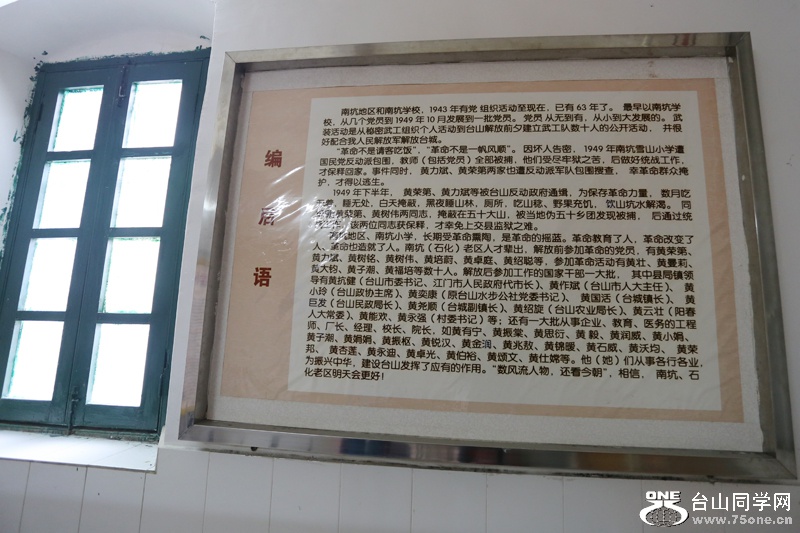 编后语
南坑地区和南坑学校，1943 年有党 组织活动至现在，已有 63 年了。 最早以南坑学
校，从几个党员到 1949 年 10 月发展到一批党员。 党员 从无到有，从小到大发展的。 武
装活动是从秘密武工组织个人活动到台山解放前夕建立武工队数十人的公开活动， 并很
好配合我人民解放军解放台城。
“革命不是请客吃饭”，“革命不是一帆风顺”。 因坏人告密，1949 年南坑雪山小学遭
国民党反动派包围，教师（包括党员）全部被捕，他们受尽牢狱之苦，后做好统战工作，
才保释回家。事件同时， 黄力斌、黄荣第两家也遭反动派军队包围搜查， 幸革命群众掩
护，才得以逃生。
1949 年下半年， 黄荣第、黄力斌等被台山反动政府通缉，为保存革命力量， 数月吃
睡无处，白天掩蔽，黑夜睡山林，厕所，吃山稔、野果充饥， 饮山坑水解渴。 同
黄荣第、黄树伟两同志，掩蔽在五十大山，被当地伪五十乡团发现被捕， 后通过统
两位同志获保释，才幸免上交县监狱之难。
坑地区、南坑小学，长期受革命熏陶，是革命的摇蓝。革命教育了人，革命改变了
人，革命也造就了人。南坑（石化）老区人才辈出，解放前参加革命的党员，有黄荣第、
黄力斌、黄树铭、黄树伟、黄培蔚、黄卓庭、黄绍聪等，参加革命活动有黄壮、黄曼莉、
黄大钧、黄子潮、黄福培等数十人。解放后参加工作的国家干部一大批， 其中县局镇领
导有黄抗健（台山市委书记、江门市人民政府代市长）、黄作斌（台山市人大主任）、 黄
小玲（台山政协主席）、黄奕康（原台山水步公社党委书记）、 黄国活（台城镇长）、 黄
巨发（台山民政局长）、黄尧顺（台城副镇长）、黄绍旋（台山农业局长）、黄云壮（阳春
人大常委）、黄能欢、黄永强（村委书记）等；还有一大批从事企业、教育、医务的工程
师、厂长、经理、校长、院长，如黄有宁、黄振棠、黄思衍、黄 毅、黄润威、黄小娟、
黄子潮、黄娟娟、黄振枢、黄锐汉、黄金润、黄兆敖、黄锦暖、黄石威、黄沃均、 黄荣
邦、 黄杏莲、黄永迪、黄卓光、黄伯裕、黄颂文、黄仕嫦等。他（她）们从事各行各业，
为振兴中华，建设台山发挥了应有的作用。“数风流人物，还看今朝”，相信， 南坑、石
化老区明天会更好！
ONE 台山同学网
www.75one.cn